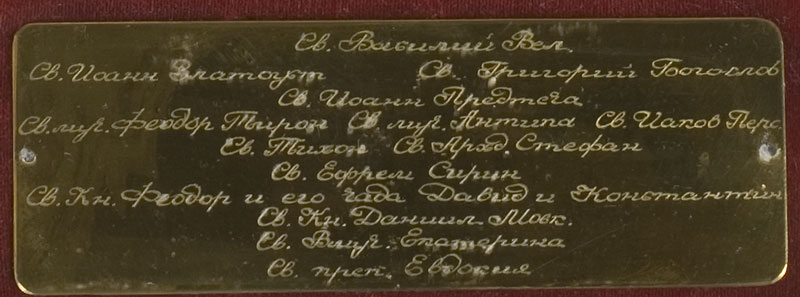 Св. Василий Вел.
Св. Иоанн Златоуст Св. Григорий Богослов
Св. Иоанн Предтеча
Св. муч. Феодор Тирон Св. муч. Антипа Св. Иаков Перс.
Св. Тихон Св. Арад. Стефан
Св. Ефрем Сирин
Св. Кн. Феодор и его чада Давид и Константин
Св. Кн. Даниил Моск.
Св. Вмуч. Екатерина
Св. преп. Евдокия